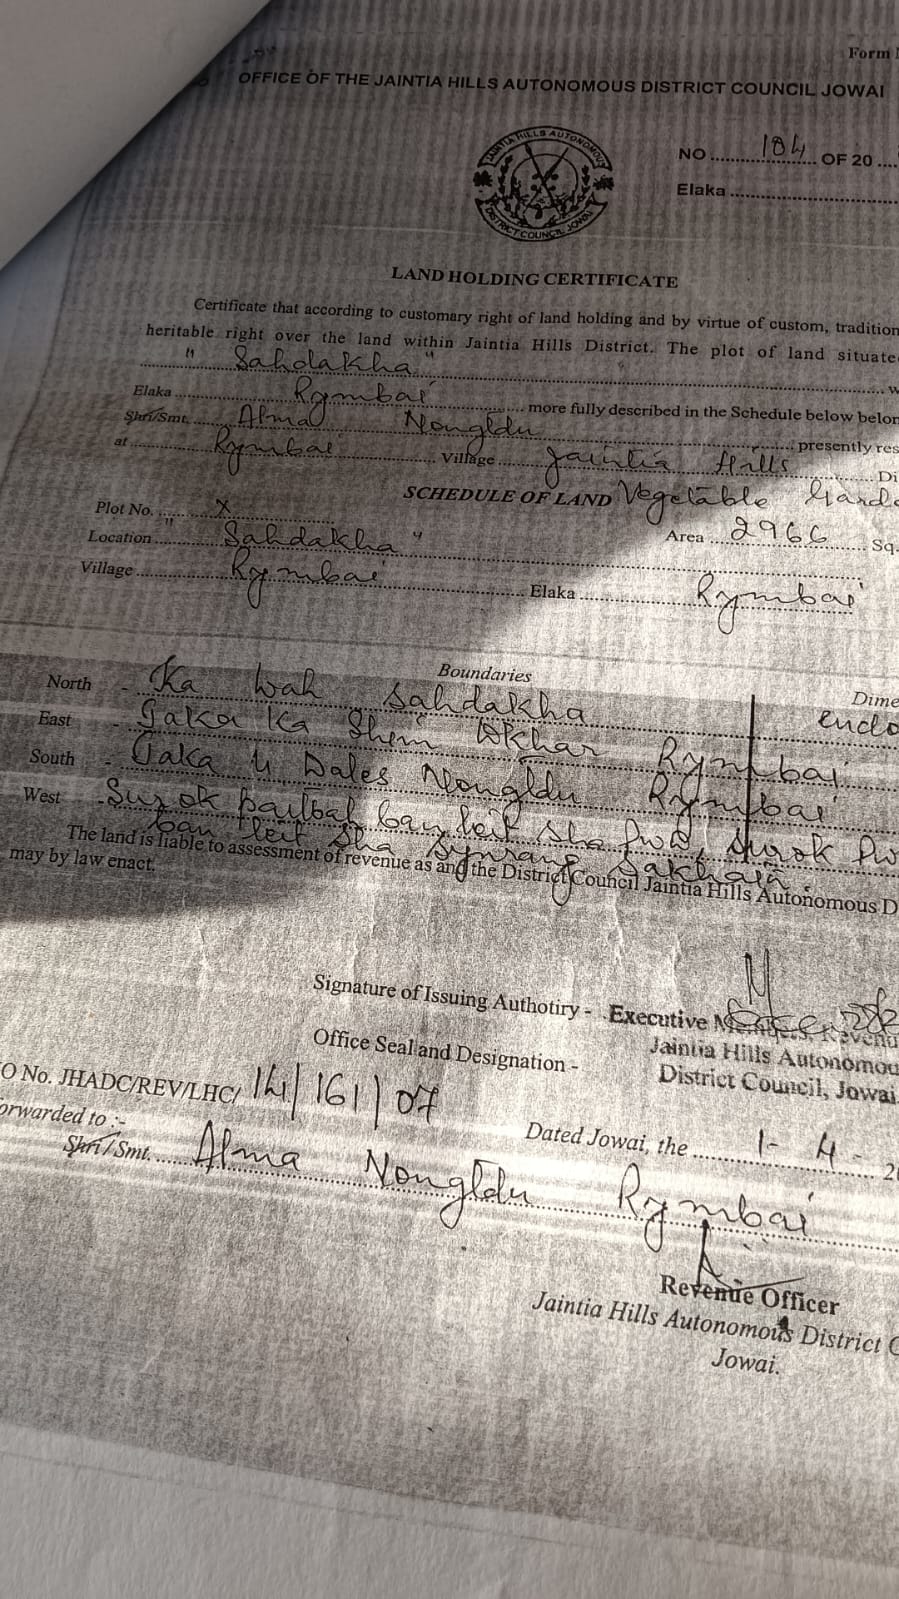 Form
OFFICE OF THE JAINTIA HILLS AUTONOMOUS DISTRICT COUNCIL JOWAI
JAINTIA HILLS AUTONOMOUS
DISTRICT COUNCIL JOWAI
NO 184 OF 20
Elaka
LAND HOLDING CERTIFICATE
Certificate that according to customary right of land holding and by virtue of custom, tradition
heritable right over the land within Jaintia Hills District. The plot of land situate
"Sahdakha"
Elaka Rymbai more fully described in the Schedule below belon
Shri/Smt. Alma Nongldu presently res
at Rymbai Village Jaintia Hills Di
SCHEDULE OF LAND Vegetable Gard
Plot No. X Area 2966 Sq.
Location "Sahdakha"
Village Rymbai Elaka Rymbai
Boundaries Dime
North - Ka wah Sahdakha enclo
East - Jaka Ka Shem Rymbai
South - Jaka U Dales Nongldu Rymbai
West - Surok ban leit sha Surok
ban leit sha
The land is liable to assessment of revenue as and the District Council Jaintia Hills Autonomous D
may by law enact.
Signature of Issuing Authotiry - Executive Revenu
Jaintia Hills Autonomou
Office Seal and Designation - District Council, Jowai
O No. JHADC/REV/LHC/ 141/161/07
Dated Jowai, the 1-4-20
orwarded to :-
Shri/Smt. Alma Nongldu Rymbai
Revenue Officer
Jaintia Hills Autonomous District C
Jowai.